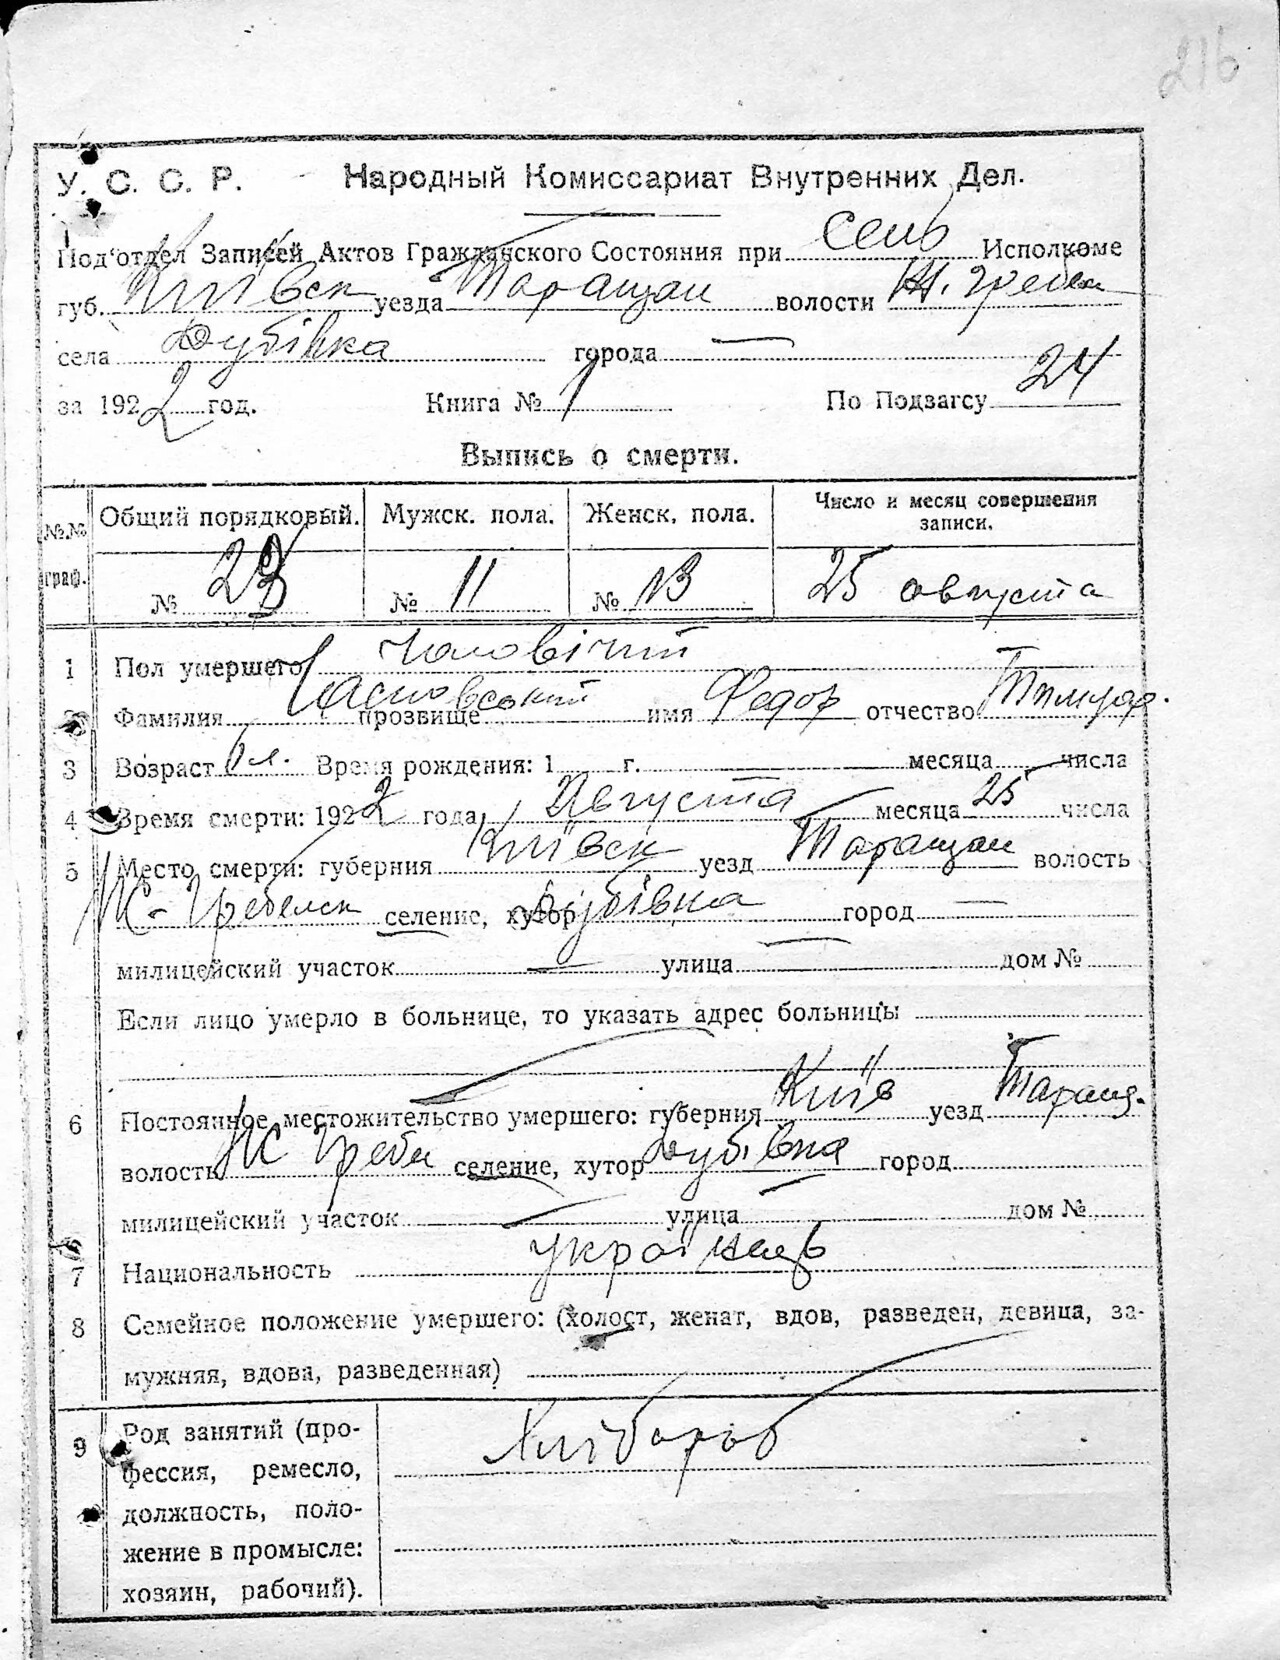 216
У. С. С. Р. Народный Комиссариат Внутренних Дел.
Под'отдел Записей Актов Гражданского Состояния при Сель Исполкоме
губ. Київск уезда Таращан волости Ж. Гребен
села Дубівка города —
за 1922 год. Книга № 1 По Подзагсу 24
Выпись о смерти.
№.№ граф. Общий порядковый. Мужск. пола. Женск. пола. Число и месяц совершения записи.
№ 23 № 11 № 13 25 августа
1 Пол умершего Чоловічий
2 Фамилия прозвище имя Федор отчество
3 Возраст 1 л. Время рождения: 1 г. — месяца — числа
4 Время смерти: 1922 года, Августа месяца 25 числа
5 Место смерти: губерния Київск уезд Таращан волость
Ж-Гребелск селение, хутор Дубівка город —
милицейский участок — улица — дом №
Если лицо умерло в больнице, то указать адрес больницы
6 Постоянное местожительство умершего: губерния Київ уезд Таращ.
волость Ж Греби селение, хутор Дубівка город
милицейский участок — улица — дом №
7 Национальность українець
8 Семейное положение умершего: (холост, женат, вдов, разведен, девица, за-
мужняя, вдова, разведенная)
9 Род занятий (про- Хлібороб
фессия, ремесло,
должность, поло-
жение в промысле:
хозяин, рабочий).